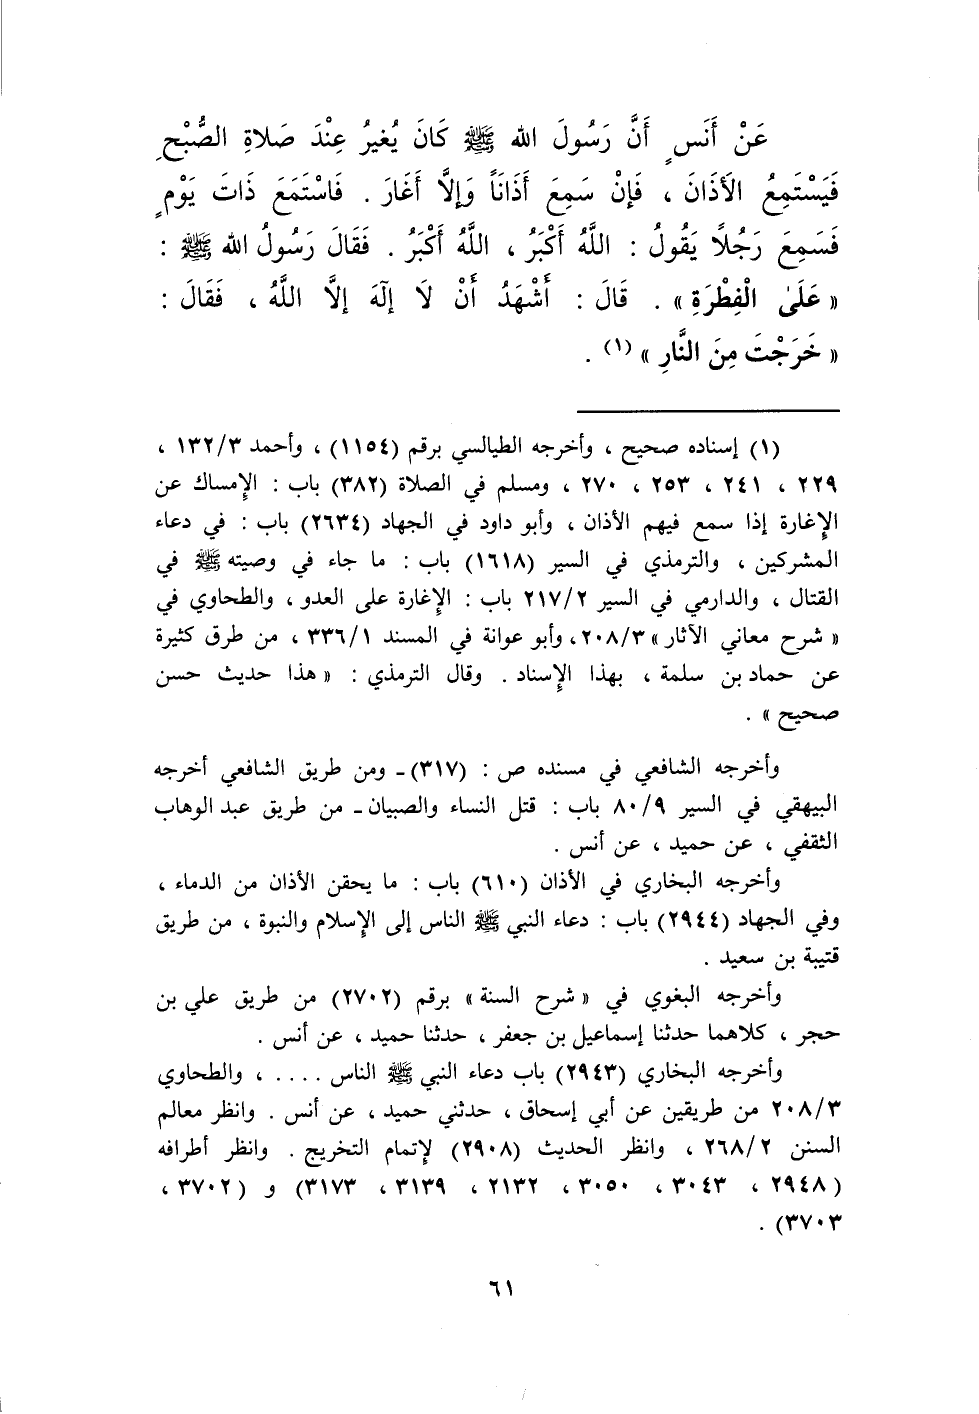 عَنْ أَنَسٍ أَنَّ رَسُولَ الله ﷺ كَانَ يُغيرُ عِنْدَ صَلاةِ الصُّبْحِ
فَيَسْتَمِعُ الأَذَانَ ، فَإِنْ سَمِعَ أَذَانَاً وَإِلَّا أَغَارَ . فَاسْتَمَعَ ذَاتَ يَوْمٍ
فَسَمِعَ رَجُلًا يَقُولُ : اللَّهُ أَكْبَرُ ، اللَّهُ أَكْبَرُ . فَقَالَ رَسُولُ الله ﷺ :
« عَلَىٰ الْفِطْرَةِ » . قَالَ : أَشْهَدُ أَنْ لَا إلٓهَ إلَّا اللَّهُ ، فَقَالَ :
« خَرَجْتَ مِنَ النَّارِ » (١) .
(١) إسناده صحيح ، وأخرجه الطيالسي برقم (١١٥٤) ، وأحمد ١٣٢/٣ ،
٢٢٩ ، ٢٤١ ، ٢٥٣ ، ٢٧٠ ، ومسلم في الصلاة (٣٨٢) باب : الإمساك عن
الإغارة إذا سمع فيهم الأذان ، وأبو داود في الجهاد (٢٦٣٤) باب : في دعاء
المشركين ، والترمذي في السير (١٦١٨) باب : ما جاء في وصيته ﷺ في
القتال ، والدارمي في السير ٢١٧/٢ باب : الإغارة على العدو ، والطحاوي في
« شرح معاني الآثار » ٢٠٨/٣ ، وأبو عوانة في المسند ٣٣٦/١ ، من طرق كثيرة
عن حماد بن سلمة ، بهذا الإسناد . وقال الترمذي : « هذا حديث حسن
صحيح » .
وأخرجه الشافعي في مسنده ص : (٣١٧) ـ ومن طريق الشافعي أخرجه
البيهقي في السير ٨٠/٩ باب : قتل النساء والصبيان ـ من طريق عبد الوهاب
الثقفي ، عن حميد ، عن أنس .
وأخرجه البخاري في الأذان (٦١٠) باب : ما يحقن الأذان من الدماء ،
وفي الجهاد (٢٩٤٤) باب : دعاء النبي ﷺ الناس إلى الإسلام والنبوة ، من طريق
قتيبة بن سعيد .
وأخرجه البغوي في « شرح السنة » برقم (٢٧٠٢) من طريق علي بن
حجر ، كلاهما حدثنا إسماعيل بن جعفر ، حدثنا حميد ، عن أنس .
وأخرجه البخاري (٢٩٤٣) باب دعاء النبي ﷺ الناس .... ، والطحاوي
٢٠٨/٣ من طريقين عن أبي إسحاق ، حدثني حميد ، عن أنس . وانظر معالم
السنن ٢٦٨/٢ ، وانظر الحديث (٢٩٠٨) لإتمام التخريج . وانظر أطرافه
(٢٩٤٨ ، ٣٠٤٣ ، ٣٠٥٠ ، ٢١٣٢ ، ٣١٣٩ ، ٣١٧٣) و (٣٧٠٢ ،
٣٧٠٣) .
٦١